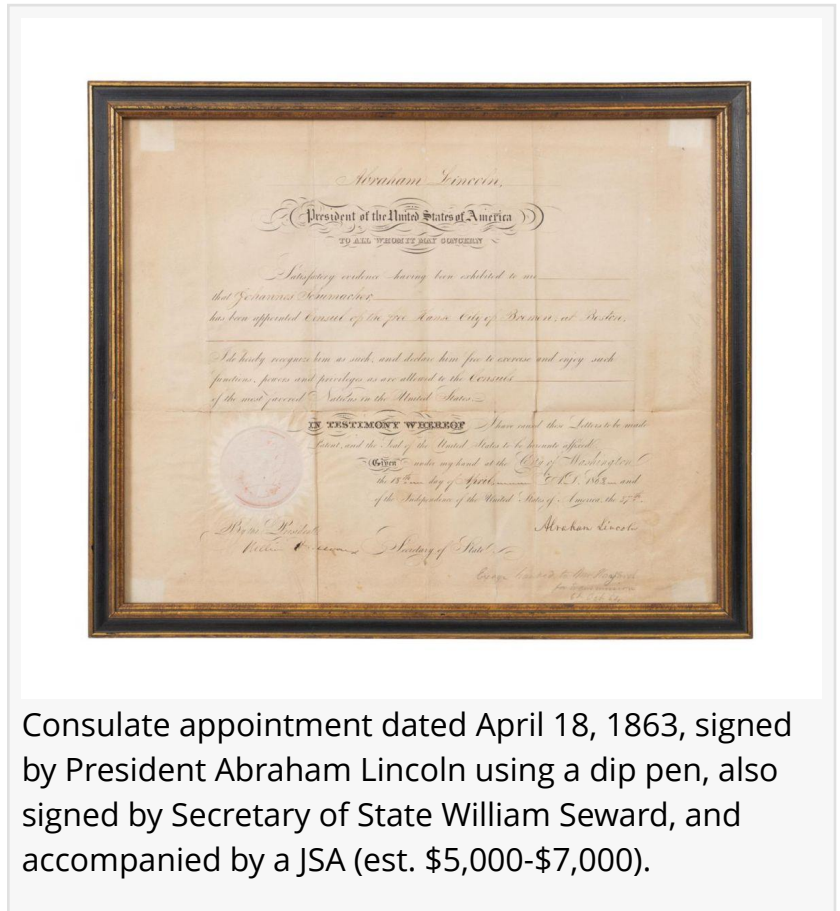 Abraham Lincoln,
President of the United States of America
TO ALL WHOM IT MAY CONCERN
Satisfactory evidence having been exhibited to me
that Johannes Schumacher
has been appointed Consul of the free Hanse City of Bremen, at Boston,
I do hereby recognize him as such, and declare him free to exercise and enjoy such
functions, powers and privileges as are allowed to the Consuls
of the most favored Nations in the United States.
IN TESTIMONY WHEREOF I have caused these Letters to be made
Patent, and the Seal of the United States to be hereunto affixed.
Given under my hand at the City of Washington
the 18th day of April A.D. 1863 and
of the Independence of the United States of America, the 87th.
Abraham Lincoln
By the President
William Seward Secretary of State
Consulate appointment dated April 18, 1863, signed
by President Abraham Lincoln using a dip pen, also
signed by Secretary of State William Seward, and
accompanied by a JSA (est. $5,000-$7,000).